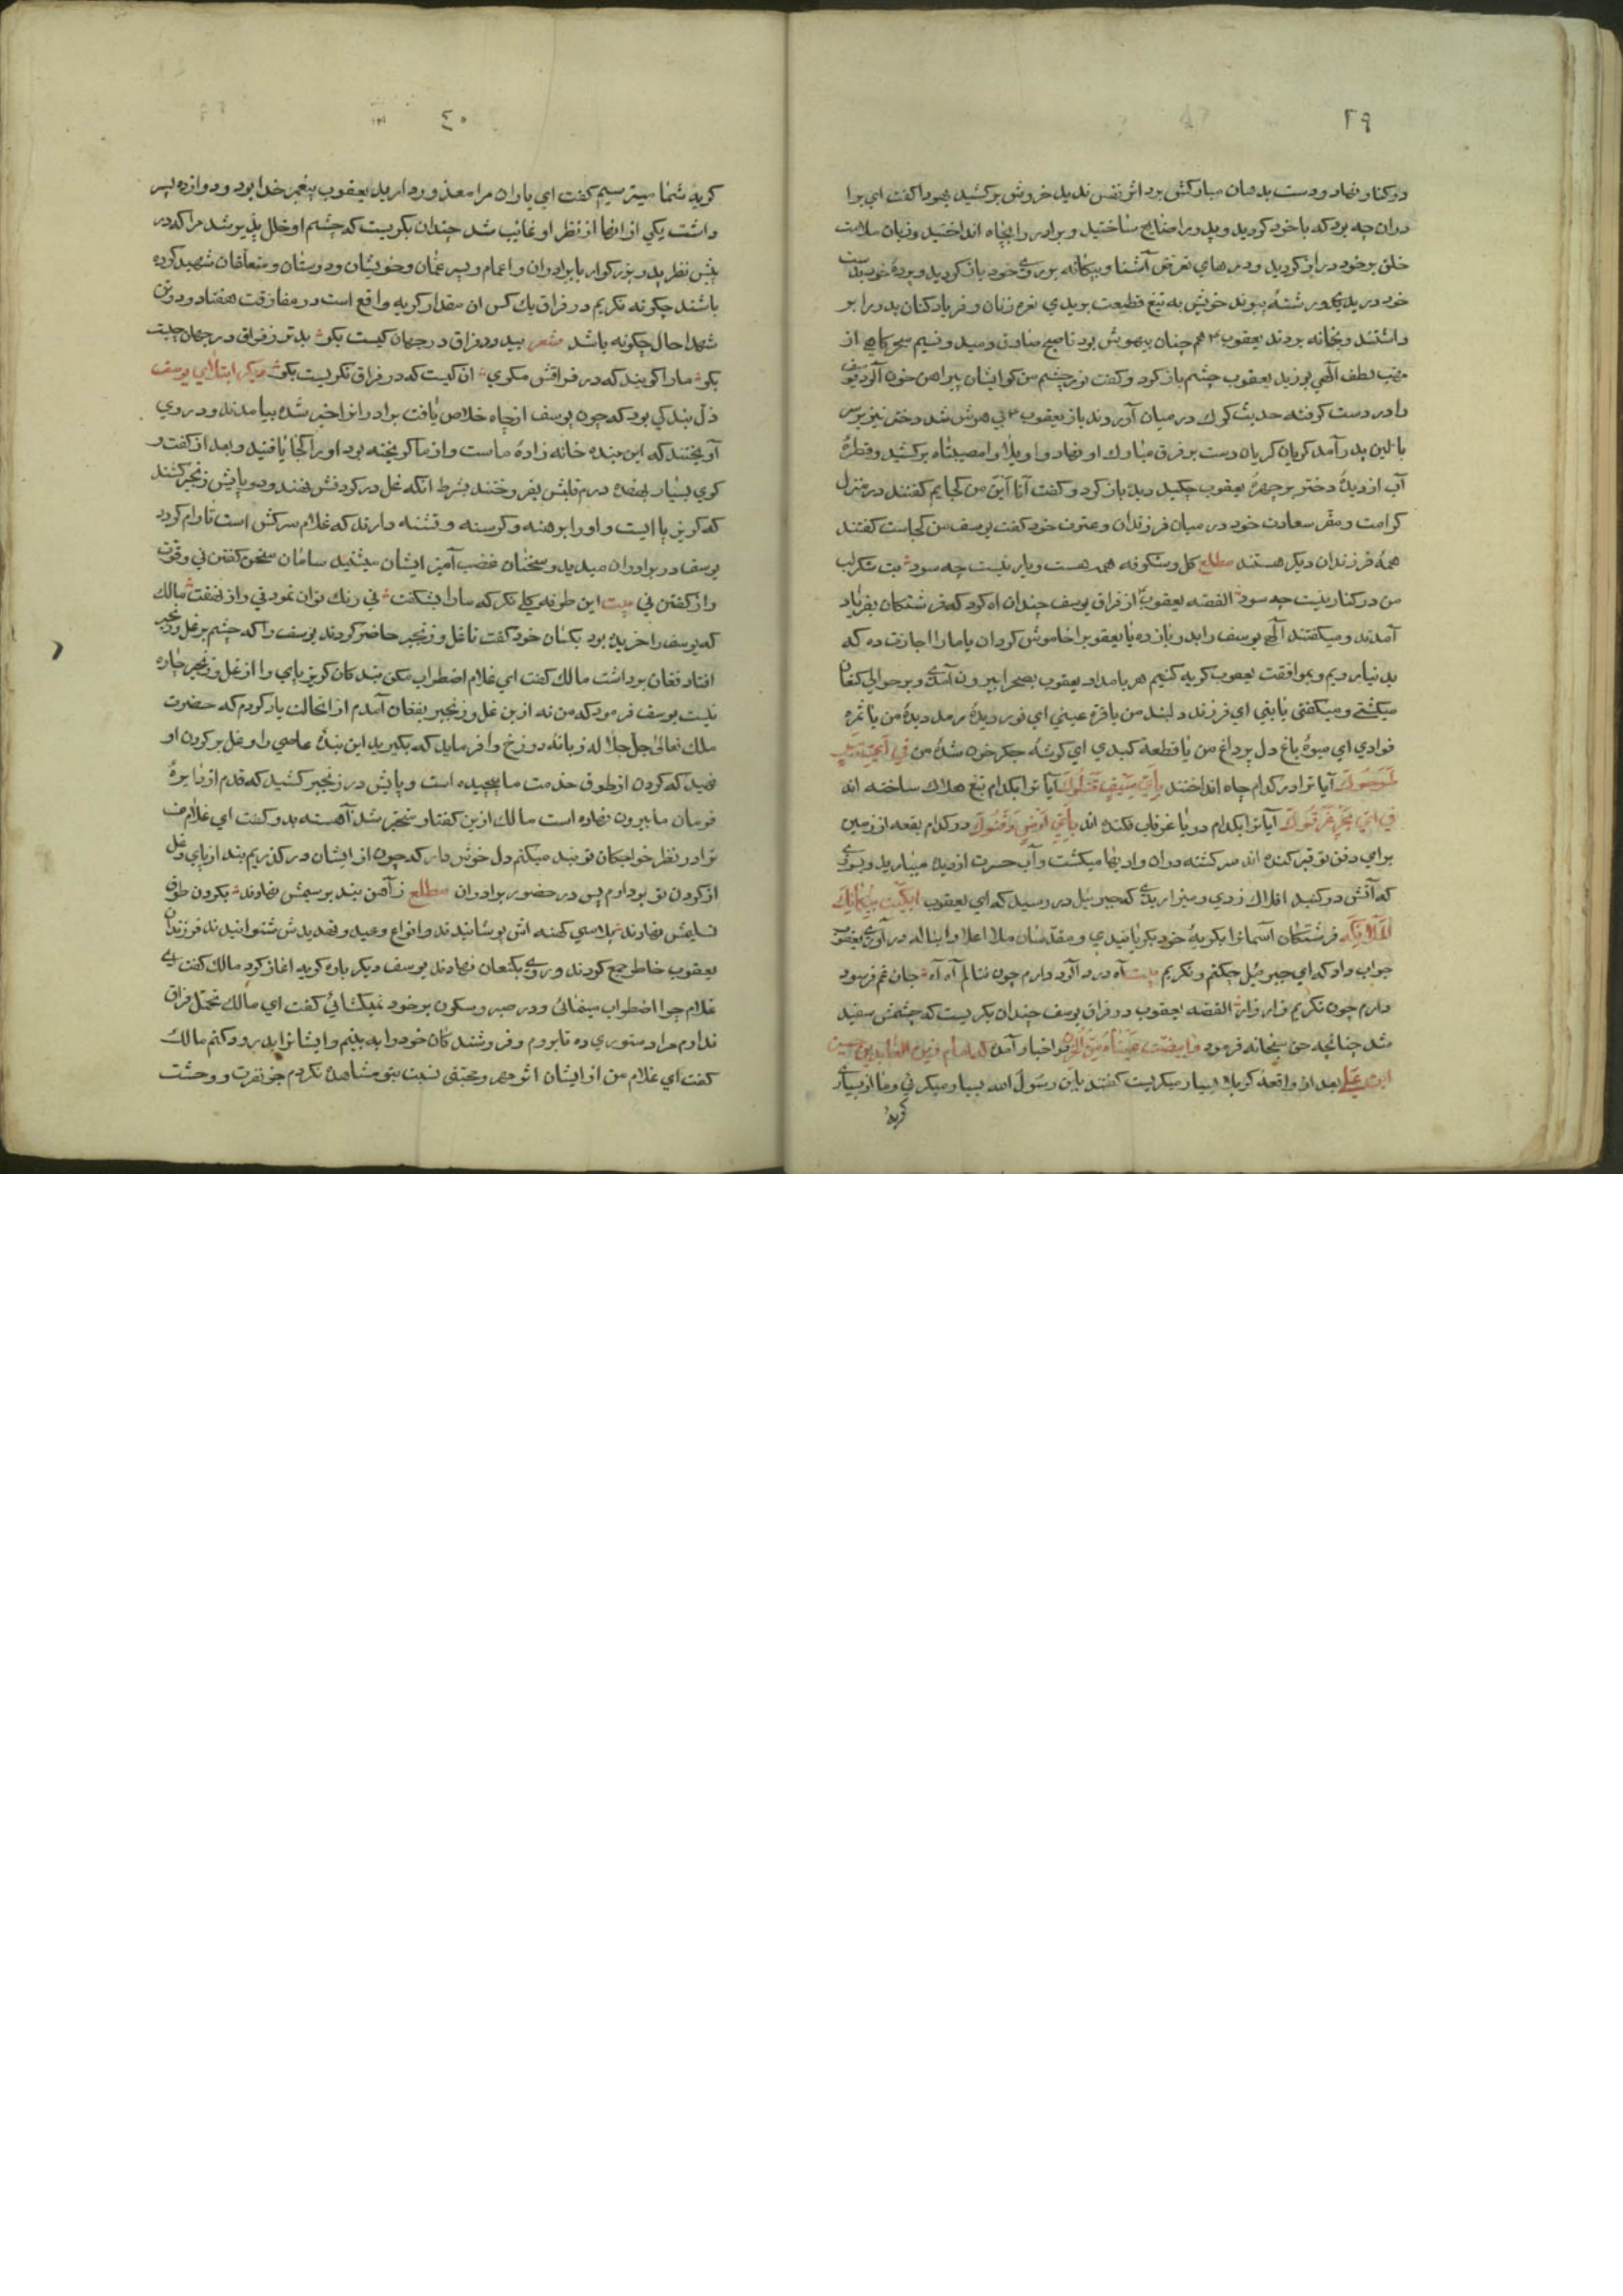 ٣٩
در کنار نهاد و دست بدهان مبارکش برد اثر نفس ندید خروش برکشید یهودا گفت ای برا
دران چه بود که با خود کردید و پدر را ضایع ساختید و برادر را بچاه انداختید و زبان ملامت
خلق بر خود دراز کردید و درهای تعرض آشنا و بیکانه بروی خود باز کردید و پردهٔ خود بدست
خود دریدیم و رشتهٔ پیوند خویش به تیغ قطیعت بریدی نعره زنان و فریاد کنان پدر را بر
داشتند و بخانه بردند یعقوب ٤ هم چنان بیهوش بود تا صبح صادق دمید و نسیم سحرکاهی از
مهب لطف آلهی بوزید یعقوب چشم باز کرد و کفت نور چشم من کو ایشان پیراهن خون آلود یوسف
را در دست کرفته حدیث کرک در میان آوردند باز یعقوب ٤ بی هوش شد دختر نیز بر سر
بالین پدر آمد کریان کریان دست بر فرق مبارک او نهاد واویلا وامصیبتاه برکشید و قطرهٔ
آب از دیدهٔ دختر بر چهرهٔ یعقوب چکید دیده باز کرد و کفت آنا این من کجایم کفتند در منزل
کرامت و مقر سعادت خود در میان فرزندان و عترت خود کفت یوسف من کجاست کفتند
همهٔ فرزندان دیکر هستند مطلع کل و شکوفه همه هست و یار نیست چه سود بت شکر لب
من در کنار نیست چه سود القصه یعقوب از فراق یوسف چندان آه کرد که فرشتکان بفریاد
آمدند و میکفتند آلهی یوسف را بدر باز ده یا یعقوب را خاموش کردان یا مارا اجازت ده که
بدنیا رویم و بموافقت یعقوب کریه کنیم هر بامداد یعقوب بصحرا بیرون آمدی و بر حوالی کنعان
میکشتی و میکفتی یا بنی ای فرزند دلبند من یا قرة عینی ای نور دیدهٔ رمد دیدهٔ من یا ثمرة
فوادی ای میوهٔ باغ دل پر داغ من یا قطعة کبدی ای کوشهٔ جکر خون شدهٔ من فی ای بیر
طرحوک آیا ترا در کدام چاه انداختند بای سیف قتلوک آیا ترا بکدام تیغ هلاک ساخته اند
فی ای بحر غرقوک آیا ترا بکدام دریا غرقاب فکنده اند بای ارض دفنوک در کدام بقعه از زمین
برای دفن تو قبر کنده اند سرکشته دران وادیها میکشت و آب حسرت از دیده میبارید و بسوزی
که آتش در کنبد افلاک زدی و میزاریدی که جبرئیل در رسید که ای یعقوب ابکیت ببکائک
الملائکه فرشتکان آسمانرا بکریهٔ خود بکریانیدی و مقدسان ملاء اعلا را بناله در آوردی یعقوب
جواب داد که ای جبرئیل چکنم و نکریم بیت آه درد آلود دارم چون ننالم آه آه جان غم فرسود
دارم چون نکریم زار زار القصه یعقوب در فراق یوسف چندان بکریست که چشمش سفید
شد چنانچه حق سبحانه فرمود وابیضت عیناه من الحزن در اخبار آمده که امام زین العابدین حسین
ابن علی بعد از واقعهٔ کربلا بسیار میکریست کفتند یابن رسول الله بسیار میکریی و ما از بسیاری
کریه
٤٠
کریه شما میترسیم کفت ای یاران مرا معذور دارید یعقوب پیغمبر خدا بود و دوازده پسر
داشت یکی از انها از نظر او غائب شد چندان بکریست که چشم او خلل پذیر شد مرا که در
پیش نظر پدر بزرکوار با برادران و اعمام و پسر عمان و خویشان و دوستان و متعلقان شهید کرده
باشند چکونه نکریم در فراق یک کس ان مقدار کریه واقع است در مفارقت هفتاد و دو تن
شهدا حال چکونه باشد شعر بیدود فراق در جهان کیست بکو بدتر ز فراق در جهان چیست
بکو مارا کویند که در فراقش مکری ان کیست که در فراق نکریست بکو دیکر ابتلای یوسف
ذل بندکی بود که چون یوسف از چاه خلاص یافت برادرانرا خبر شده بیامدند و در وی
آویختند که این بنده خانه زادهٔ ماست و از ما کریخته بود اورا کجا یافتید و بعد از کفت و
کوی بسیار بهفده درم قلبش بفروختند بشرط انکه غل در کردنش نهند و بر پایش زنجیر کشند
که کریز پا است و اورا برهنه و کرسنه و تشنه دارند که غلام سرکش است تا رام کردد
یوسف در برادران میدید و سخنان غضب آمیز ایشان میشنید سامان سخن کفتن نی و قوت
راز کفتن نی بیت این طرفه کلی نکر که مارا بشکفت نی رنک توان نمود نی راز نهفت مالک
که یوسف را خریده بود بکسان خود کفت تا غل و زنجیر حاضر کردند یوسف را که چشم بر غل و زنجیر
افتاد فغان برداشت مالک کفت ای غلام اضطراب مکن بندکان کریز پای را از غل و زنجیر چاره
نیست یوسف فرمود که من نه از بن غل و زنجیر بفغان آمدم از انحالت یاد کردم که حضرت
ملک تعالی جل جلاله زبانهٔ دوزخ را فرماید که بکیرید این بندهٔ عاصی را و غل بر کردن او
نهید که کردن از طوق خدمت ما پیچیده است و پایش در زنجیر کشید که قدم از دایرهٔ
فرمان ما بیرون نهاده است مالک ازین کفتار متحیر شد آهسته بدو کفت ای غلام من
ترا در نظر خواجکان تو بند میکنم دل خوش دار که چون از ایشان در کذریم بند از پای و غل
از کردن تو بردارم پس در حضور برادران مطلع ز آهن بند بر سیمش نهادند بکردن طوق
تسلیمش نهادند پلاسی کهنه اش پوشانیدند و انواع وعید و تهدیدش شنوانیدند فرزندان
یعقوب خاطر جمع کردند و روی بکنعان نهادند یوسف دیکر باره کریه اغاز کرد مالک کفت ای
غلام چرا اضطراب مینمائی و در صبر و سکون بر خود نمیکشائی کفت ای مالک تحمل فراق
ندارم مرا دستوری ده تا بروم و فروشندکان خود را به بینم و ایشانرا بدرود کنم مالک
کفت ای غلام من از ایشان اثر مهر و محبتی نسبت بتو مشاهده نکردم جز نفرت و وحشت